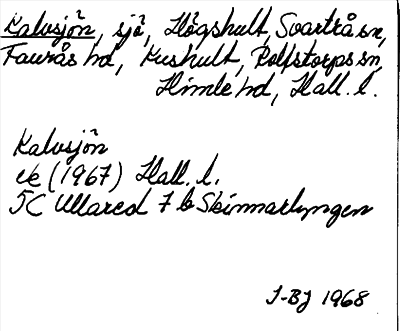 Kalvsjön, sjö, Högshult, Svartrå sn,
Faurås hd, Kushult, Rolfstorps sn,
Himle hd, Hall. l.
Kalvsjön
ek (1967) Hall. l.
5C Ullared 7 b Skinnarlyngen
J-BJ 1968